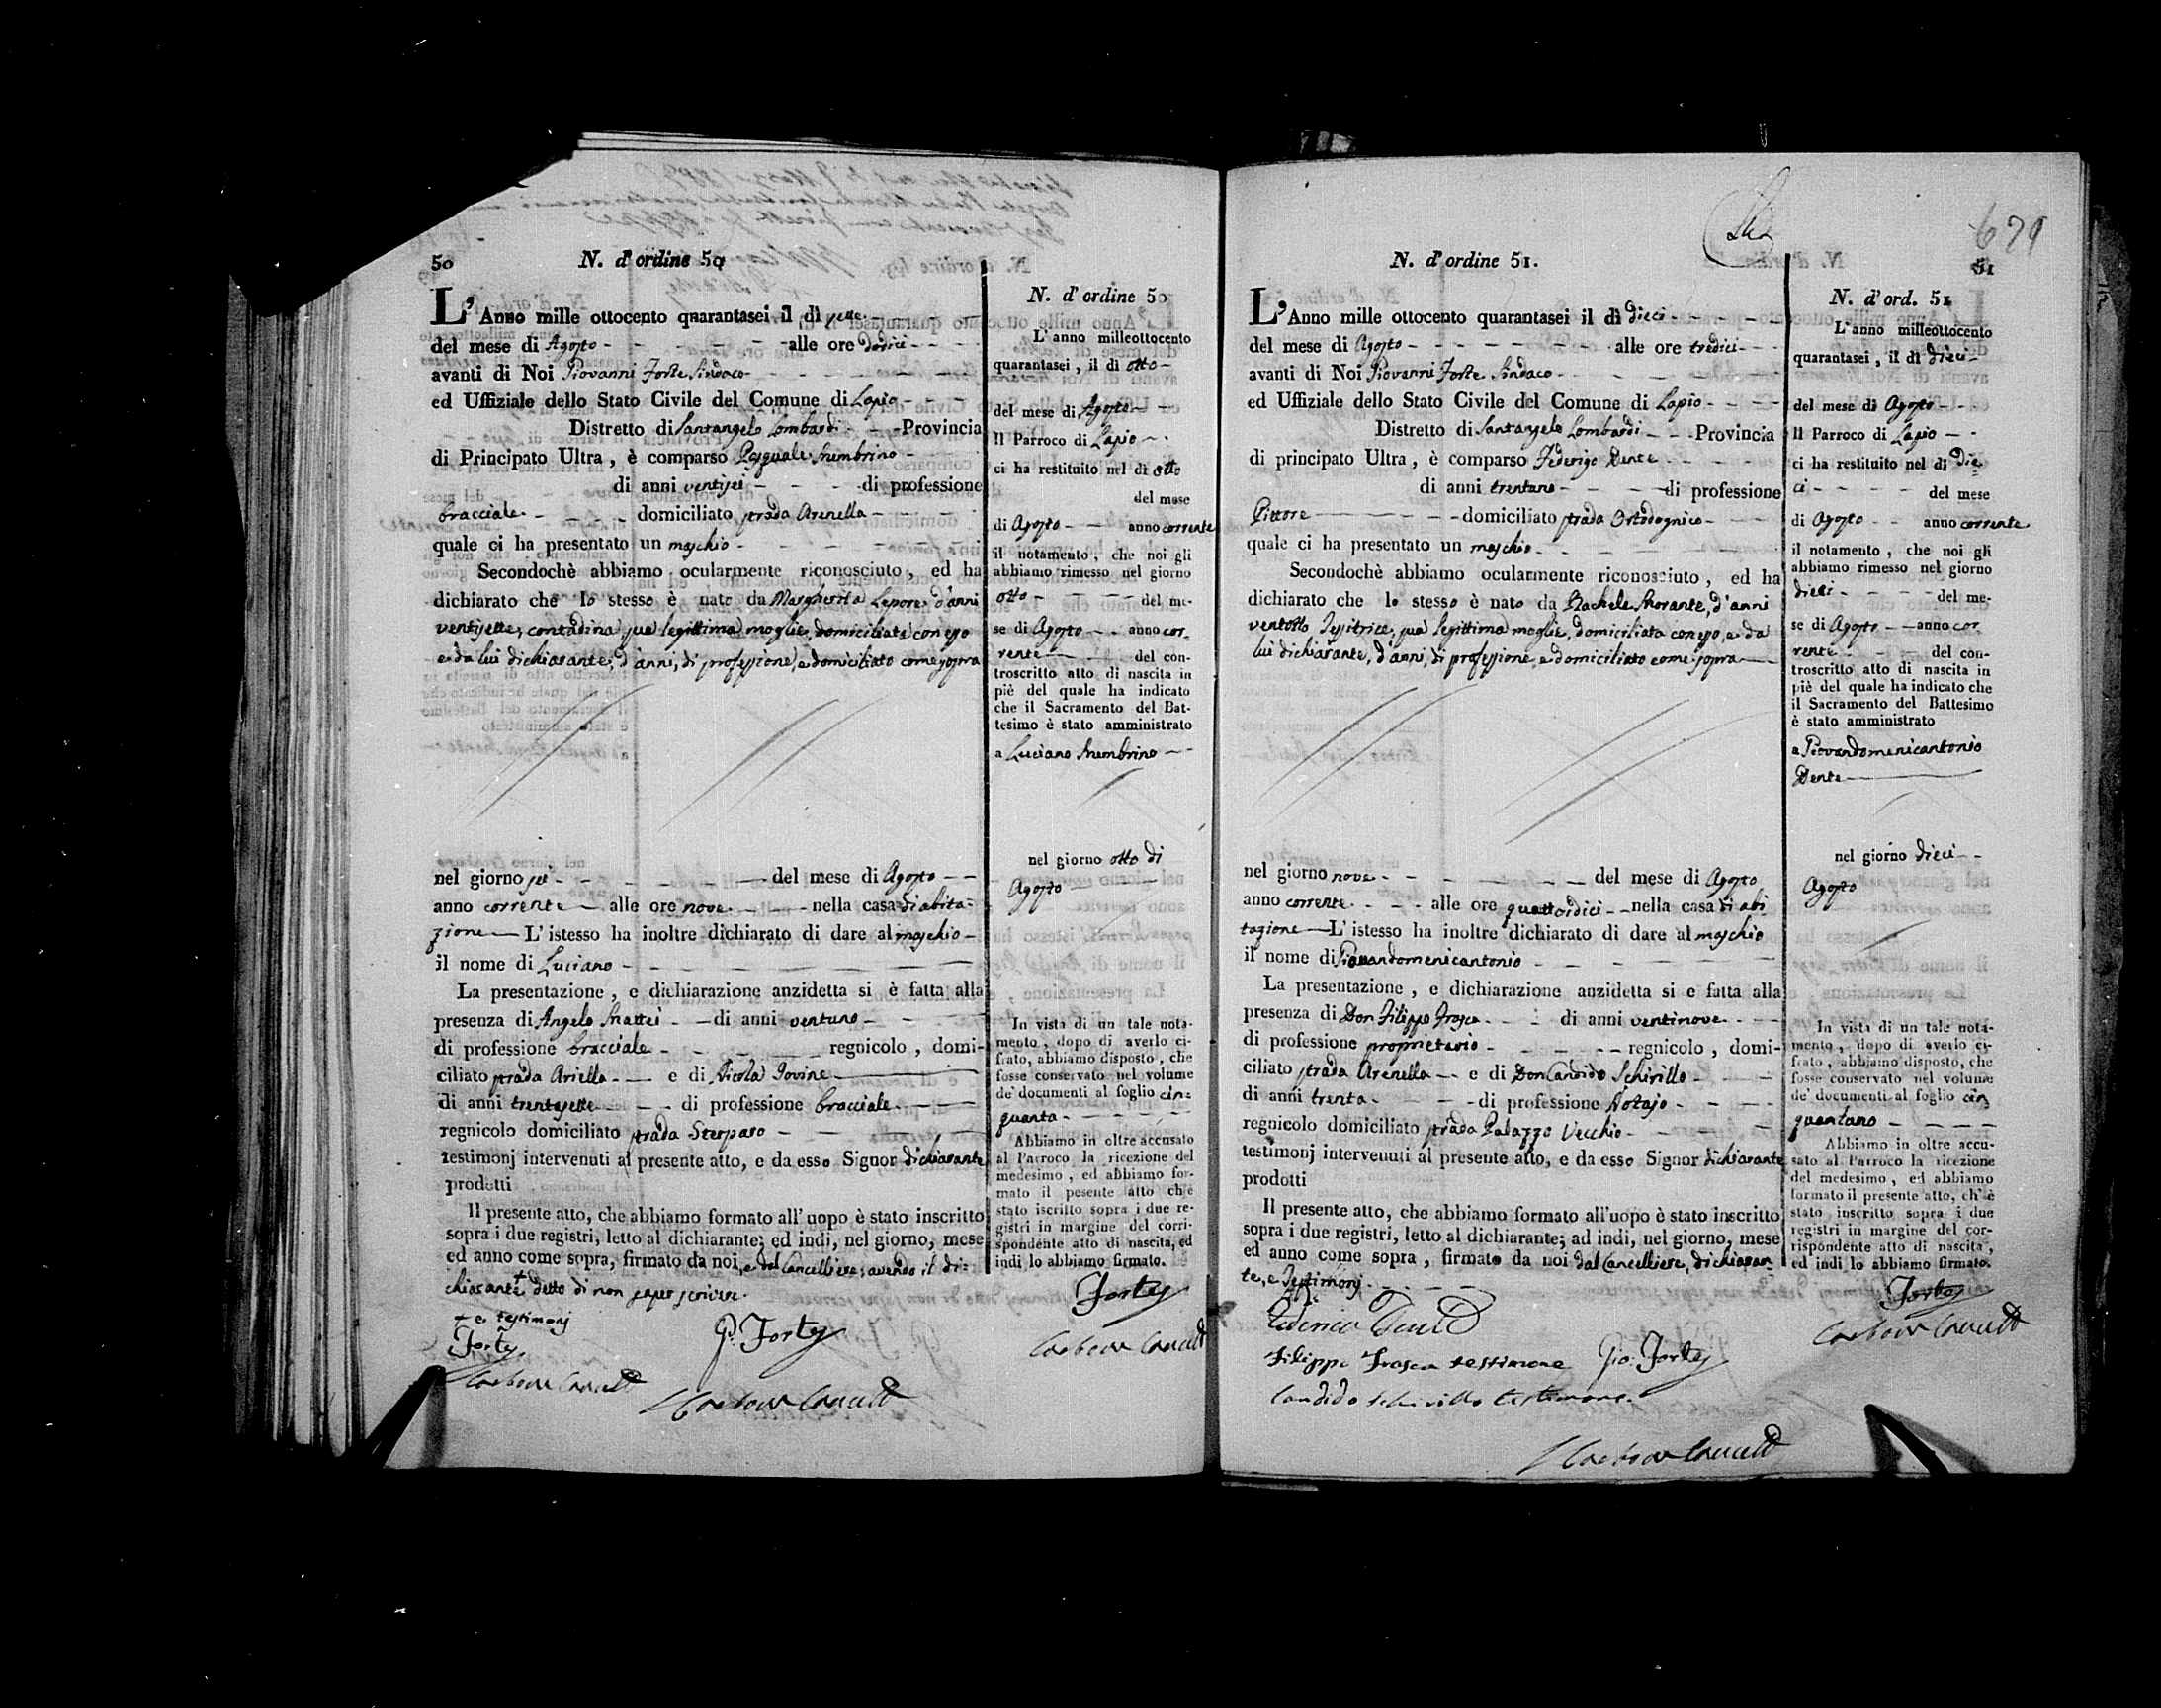 50
N. d'ordine 50
L'Anno mille ottocento quarantasei il dì sette
del mese di Agosto alle ore dodici
avanti di Noi Giovanni Forte Sindaco
ed Uffiziale dello Stato Civile del Comune di Lapio
Distretto di Santangelo Lombardi Provincia
di Principato Ultra, è comparso Pasquale Membrino
di anni ventisei di professione
bracciale domiciliato strada Arenella
quale ci ha presentato un maschio
Secondochè abbiamo ocularmente riconosciuto, ed ha
dichiarato che lo stesso è nato da Margherita Lepore d'anni
ventisette, contadina sua legittima moglie, domiciliata con esso
e da lui dichiarante, d'anni, di professione, e domiciliato come sopra
nel giorno sei del mese di Agosto
anno corrente alle ore nove nella casa di abita=
zione L'istesso ha inoltre dichiarato di dare al maschio
il nome di Luciano
La presentazione, e dichiarazione anzidetta si è fatta alla
presenza di Angelo Mattei di anni ventuno
di professione bracciale regnicolo, domi-
ciliato strada Ariella e di Nicola Iovine
di anni trentasette di professione bracciale
regnicolo domiciliato strada Sterparo
testimonj intervenuti al presente atto, e da esso Signor dichiarante
prodotti
Il presente atto, che abbiamo formato all'uopo è stato inscritto
sopra i due registri, letto al dichiarante; ed indi, nel giorno, mese
ed anno come sopra, firmato da noi, e dal Cancelliere; avendo il di=
chiarante + detto di non saper scrivere.
+ e testimonj
Forte
G. Forte
N. d'ordine 50
L'anno milleottocento
quarantasei, il dì otto
del mese di Agosto
Il Parroco di Lapio
ci ha restituito nel dì otto
del mese
di Agosto anno corrente
il notamento, che noi gli
abbiamo rimesso nel giorno
otto del me-
se di Agosto anno cor
rente del con-
troscritto atto di nascita in
piè del quale ha indicato
che il Sacramento del Bat-
tesimo è stato amministrato
a Luciano Membrino
nel giorno otto di
Agosto
In vista di un tale nota-
mento, dopo di averlo ci-
frato, abbiamo disposto, che
fosse conservato nel volume
de' documenti al foglio cin=
quanta
Abbiamo in oltre accusato
al Parroco la ricezione del
medesimo, ed abbiamo for-
mato il pesente atto ch'è
stato iscritto sopra i due re-
gistri in margine del corri-
spondente atto di nascita, ed
indi lo abbiamo firmato.
Forte
679
51
N. d'ordine 51.
L'Anno mille ottocento quarantasei il dì dieci
del mese di Agosto alle ore tredici
avanti di Noi Giovanni Forte Sindaco
ed Uffiziale dello Stato Civile del Comune di Lapio
Distretto di Santangelo Lombardi Provincia
di principato Ultra, è comparso Federigo Dente
di anni trentuno di professione
Pittore domiciliato strada Ortodognico
quale ci ha presentato un maschio
Secondochè abbiamo ocularmente riconosciuto, ed ha
dichiarato che lo stesso è nato da Rachele Morante, d'anni
ventotto Tessitrice, sua legittima moglie, domiciliata con esso, e da
lui dichiarante, d'anni, di professione, e domiciliato come sopra
nel giorno nove del mese di Agosto
anno corrente alle ore quattordici nella casa di abi
tazione L'istesso ha inoltre dichiarato di dare al maschio
il nome di Giovandomenicantonio
La presentazione, e dichiarazione anzidetta si e fatta alla
presenza di Don Filippo Frasca di anni ventinove
di professione proprietario regnicolo, domi-
ciliato strada Arenella e di Don Candido Schirillo
di anni trenta di professione Notajo
regnicolo domiciliato strada Palazzo Vecchio
testimonj intervenuti al presente atto, e da esso Signor dichiarante
prodotti
Il presente atto, che abbiamo formato all'uopo è stato inscritto
sopra i due registri, letto al dichiarante; ad indi, nel giorno, mese
ed anno come sopra, firmato da noi dal Cancelliere, dichiaran
te, e Testimonj
Federico Dente
Filippo Frasca testimone Gio: Forte
Candido Schirillo testimone.
N. d'ord. 51
L'anno milleottocento
quarantasei, il dì dieci
del mese di Agosto
Il Parroco di Lapio
ci ha restituito nel dì die
ci del mese
di Agosto anno corrente
il notamento, che noi gli
abbiamo rimesso nel giorno
dieci del me-
se di Agosto anno cor
rente del con-
troscritto atto di nascita in
piè del quale ha indicato che
il Sacramento del Battesimo
è stato amministrato
a Giovandomenicantonio
Dente
nel giorno dieci
Agosto
In vista di un tale nota-
mento, dopo di averlo ci-
frato, abbiamo disposto, che
fosse conservato nel volume
de' documenti al foglio cin
quantuno
Abbiamo in oltre accu-
sato al Parroco la ricezione
del medesimo, ed abbiamo
formato il presente atto, ch'è
stato inscritto sopra i due
registri in margine del cor-
rispondente atto di nascita,
ed indi lo abbiamo firmato.
Forte